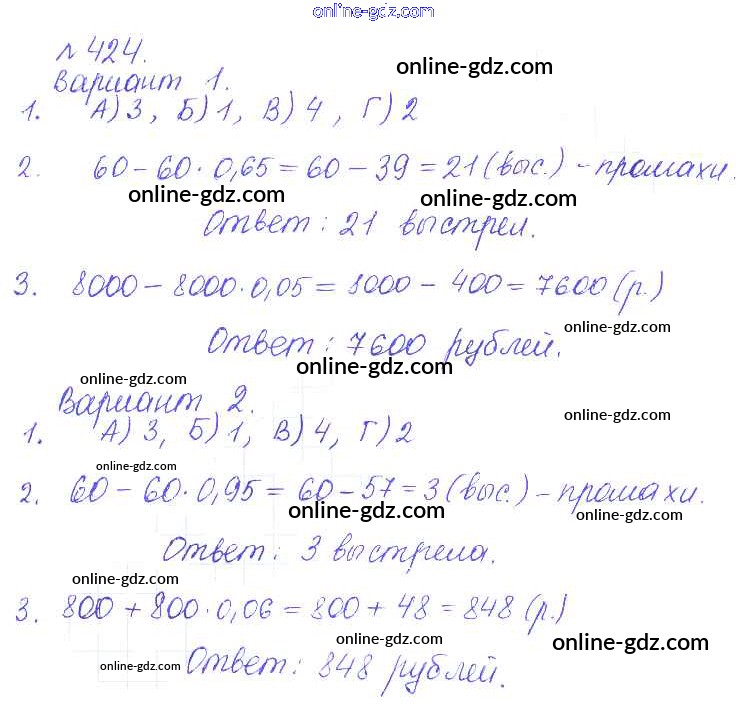 online-gdz.com
№ 424.
Вариант 1.
online-gdz.com
1. А) 3, Б) 1, В) 4, Г) 2
2. 60 – 60 · 0,65 = 60 – 39 = 21 (выс.) – промахи.
online-gdz.com online-gdz.com
Ответ: 21 выстрел.
3. 8000 – 8000 · 0,05 = 8000 – 400 = 7600 (р.)
online-gdz.com
Ответ: 7600 рублей.
online-gdz.com
online-gdz.com
Вариант 2.
online-gdz.com
1. А) 3, Б) 1, В) 4, Г) 2
online-gdz.com
2. 60 – 60 · 0,95 = 60 – 57 = 3 (выс.) – промахи.
online-gdz.com online-gdz.com
Ответ: 3 выстрела.
online-gdz.com
3. 800 + 800 · 0,06 = 800 + 48 = 848 (р.)
online-gdz.com online-gdz.com
online-gdz.com
Ответ: 848 рублей.